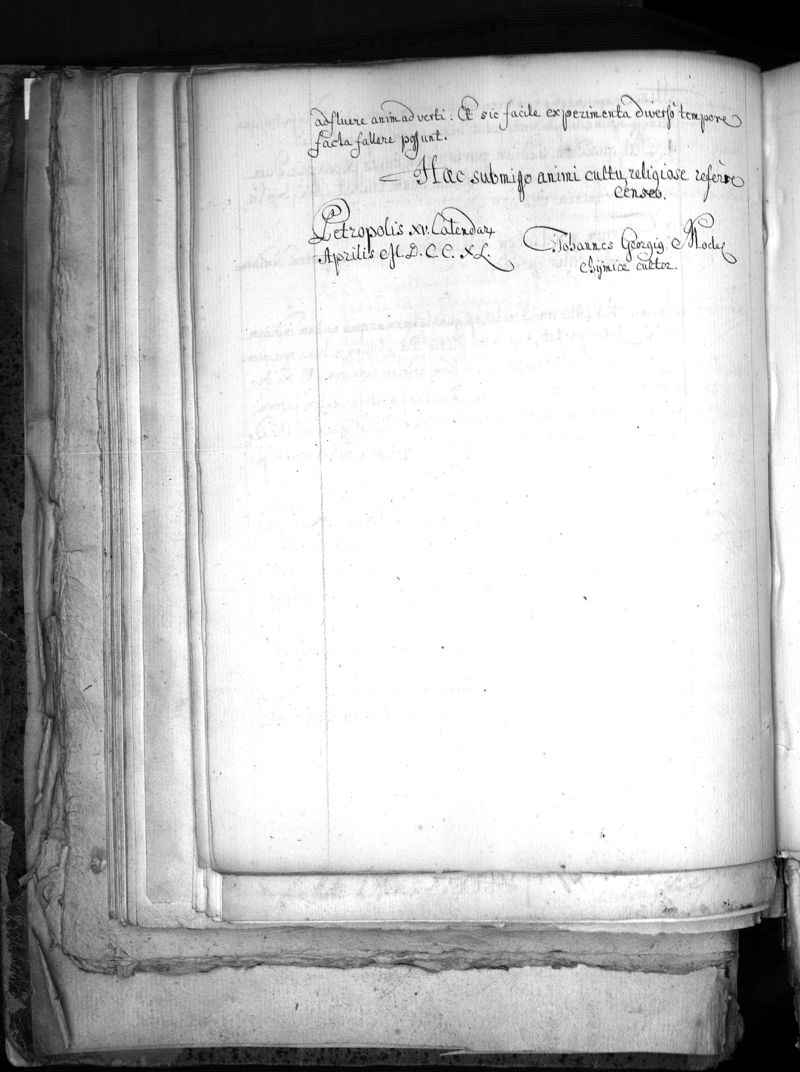 adfluere animadverti: Et sic facile experimenta diverso tempore
facta fallere possunt.
Hac submisso animi cultu religiose referre
censeo.
Petropolis XV. Calendar
Aprilis M.D.C.C.XL.
Johannes Georgig Model
chymice cultor.